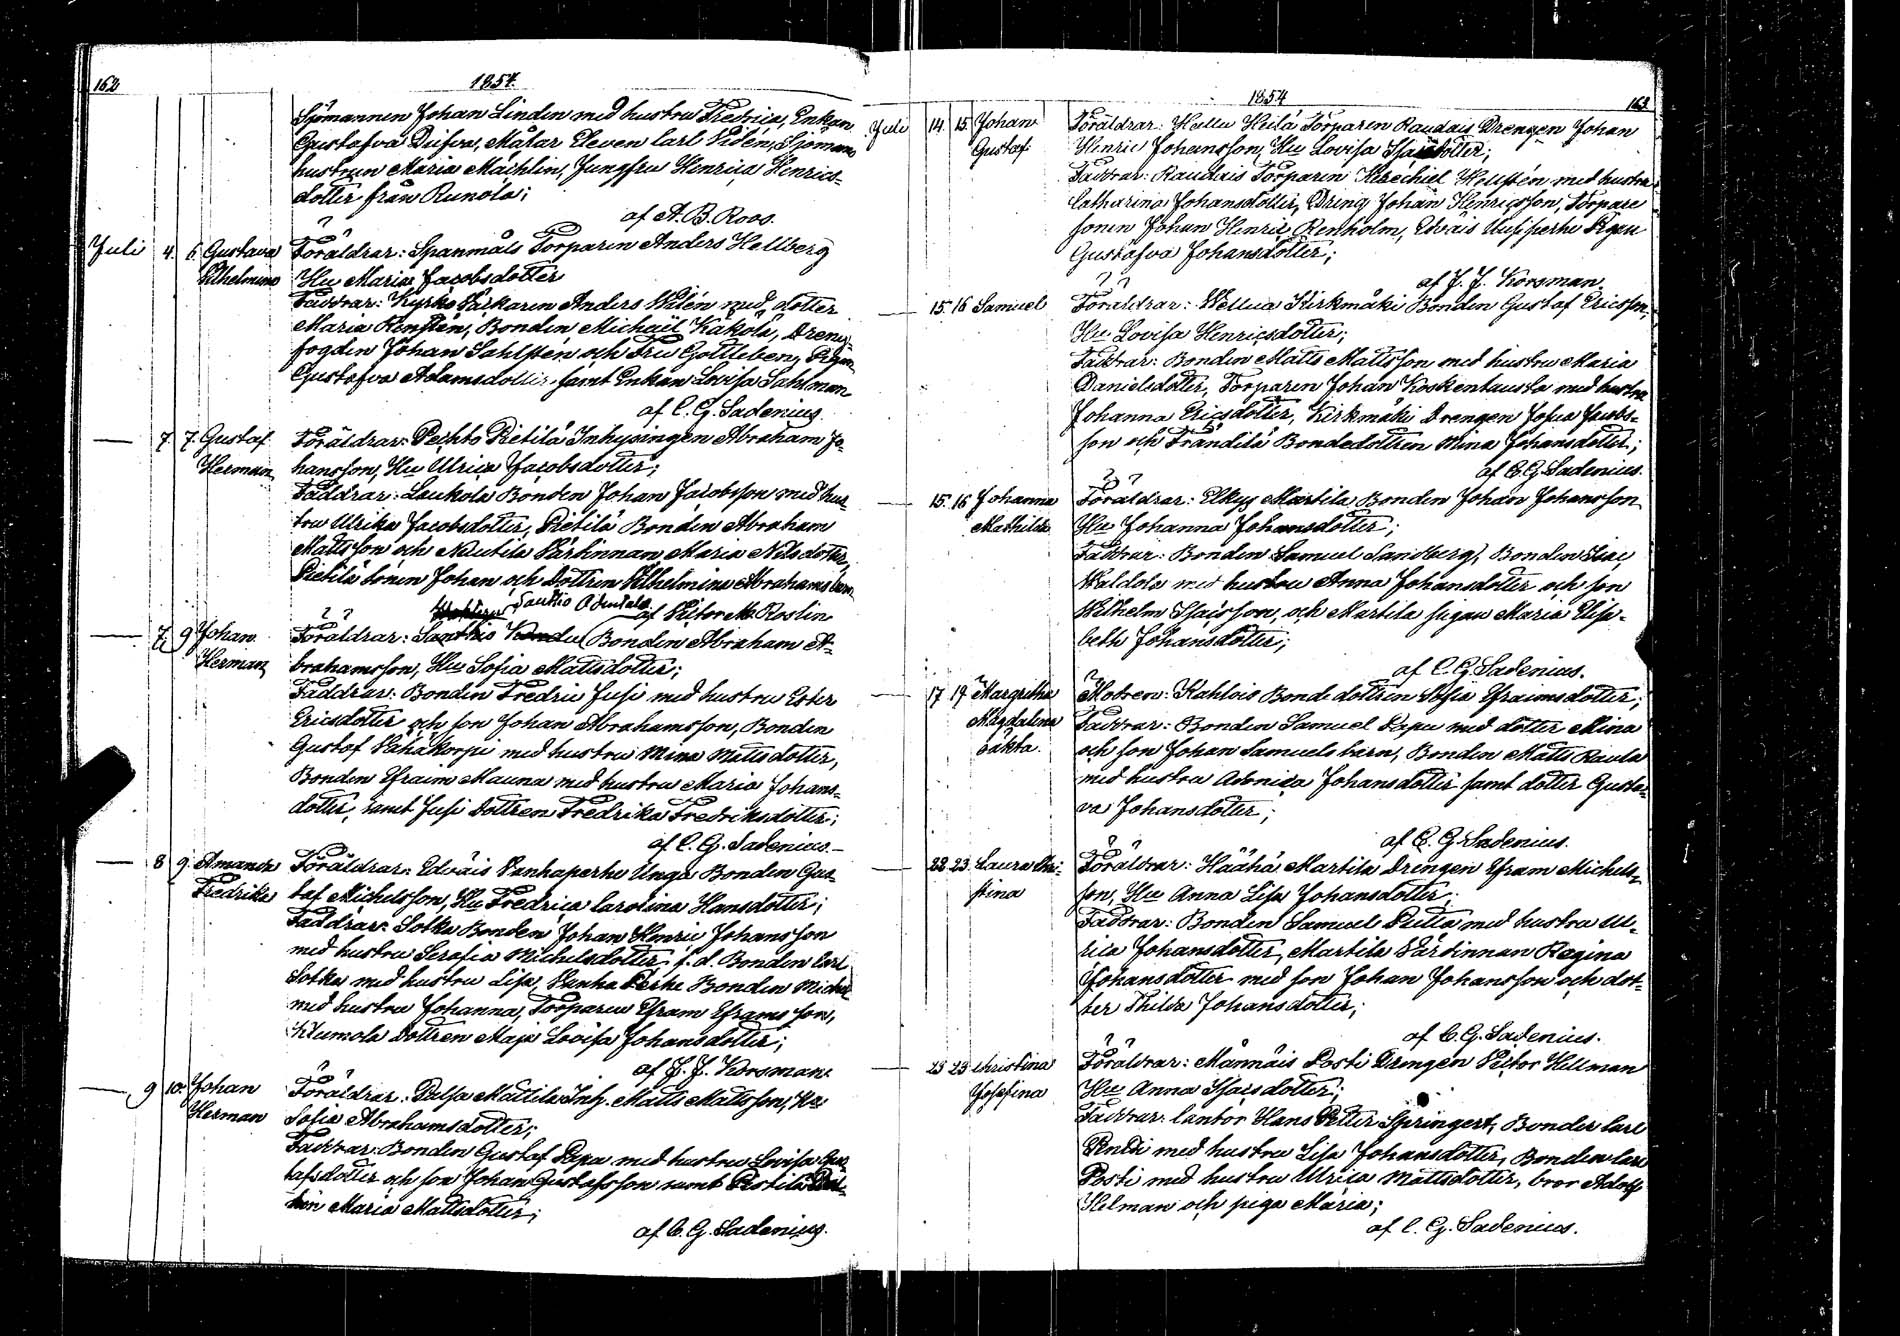 162
1854.
Sjömannen Johan Linden med hustru Fredrica, Enkan
Gustafva Dufva, Målar Eleven Carl Vidén, Sjömans
hustrun Maria Machlin, Jungfru Henrica Henrics-
dotter från Runola;
af A. B. Roos.
Juli 4. 6. Gustava Föräldrar: Spanmåls Torparen Anders Hellberg
Vilhelmina Hu Maria Jacobsdotter
Faddrar: Kyrko Väktaren Anders Widén med dotter
Maria Renstén, Bonden Michaël Kakola, Dreng-
fogden Johan Sahlstén och Fru Gottleben, Pigan
Gustafva Adamsdotter, samt Enkan Lovisa Sahlman
af C. G. Sadenius.
— 7. 7. Gustaf Föräldrar: Peehto Pietilä Inhysingen Abraham Jo-
Herman hansson, Hu Ulrica Jacobsdotter;
Faddrar: Laukola Bonden Johan Jacobsson med hus-
tru Ulrika Jacobsdotter, Pietilä Bonden Abraham
Mattsson och Nautila Värdinnan Maria Nilsdotter,
Pietilä sonen Johan och Dottren Vilhelmina Abrahams barn
Sauthio Adentala af Victor M. Roslin
— 7. 9 Johan Föräldrar: Santhio Bonden Abraham A-
Herman brahamsson, Hu Sofia Mattsdotter;
Faddrar: Bonden Fredric Jusi med hustru Ester
Ericsdotter och son Johan Abrahamsson, Bonden
Gustaf Vähäkorpi med hustru Mina Mattsdotter,
Bonden Efraim Mauna med hustru Maria Johans-
dotter, samt Jusi Dottren Fredrika Fredriksdotter;
af C. G. Sadenius.—
— 8 9. Amanda Föräldrar: Edväis Vanhaperhe Unga Bonden Gus-
Fredrika taf Michelsson, Hu Fredrica Carolina Hansdotter;
Faddrar: Sotka Bonden Johan Henric Johansson
med hustru Serafia Michelsdotter, f.d. Bonden Carl
Sotka med hustru Lisa, Vanha Perhe Bonden Michel
med hustru Johanna, Torparen Efram Eframsson,
Klumola Dottren Maja Lovisa Johansdotter;
af J. J. Korsman.
— 9 10. Johan Föräldrar: Palsa Mattila Inh. Matts Mattsson, Hu
Herman Sofia Abrahamsdotter;
Faddrar: Bonden Gustaf Papa med hustru Lovisa Gus-
tafsdotter och son Johan Gustafsson samt
Maria Mattsdotter;
af C. G. Sadenius.
1854
163
Juli 14. 15. Johan Föräldrar: Hellu Heilä Torparen Raudais Drengen Johan
Gustaf Henric Johansson, Hu Lovisa Isaisdotter;
Faddrar: Raudais Torparen Hezechiel Hellstén med hustru
Catharina Johansdotter, Dreng Johan Henricsson, Torpare
sonen Johan Henric Renholm, Edväis Uusiperhe Pigan
Gustafva Johansdotter;
af J. J. Korsman.
— 15. 16 Samuel Föräldrar: Wellua Kirkmäki Bonden Gustaf Ericsson,
Hu Lovisa Henricsdotter;
Faddrar: Bonden Matts Mattsson med hustru Maria
Danielsdotter, Torparen Johan Koskentausta med hustru
Johanna Ericsdotter, Kirkmäki Drengen Josua Jacobs-
son och Frändilä Bondedottren Mina Johansdotter;
af C. G. Sadenius.
— 15. 16 Johanna Föräldrar: Elkys Martila Bonden Johan Johansson
Mathilda Hu Johanna Johansdotter;
Faddrar: Bonden Samuel Sandberg, Bonden Isac
Waldola med hustru Anna Johansdotter och son
Wilhelm Isacsson, och Martila pigan Maria Elisa-
beth Johansdotter;
af C. G. Sadenius.
— 17 19 Margretha Modren: Kahlois Bonde dottren Sofia Efraimsdotter;
Magdalena Faddrar: Bonden Samuel Papu med dotter Mina
oäkta. och son Johan Samuels barn, Bonden Matts Raula
med hustru Adonica Johansdotter samt dotter Gusta-
va Johansdotter;
af C. G. Sadenius.
— 22 23. Laura Chri- Föräldrar: Häähä Martila Drengen Efram Michels-
stina son, Hu Anna Lisa Johansdotter;
Faddrar: Bonden Samuel Plutta med hustru Ul-
rica Johansdotter, Martila Värdinnan Regina
Johansdotter med son Johan Johansson och dot-
ter Thilda Johansdotter;
af C. G. Sadenius.
— 23 23 Christina Föräldrar: Männäis Posti Drengen Victor Hellman
Josefina Hu Anna Isacsdotter;
Faddrar: Cantor Hans Petter Springert, Bonden Carl
Pendi med hustru Lisa Johansdotter, Bonden Carl
Posti med hustru Ulrica Mattsdotter, bror Adolf
Helman och piga Maria;
af C. G. Sadenius.